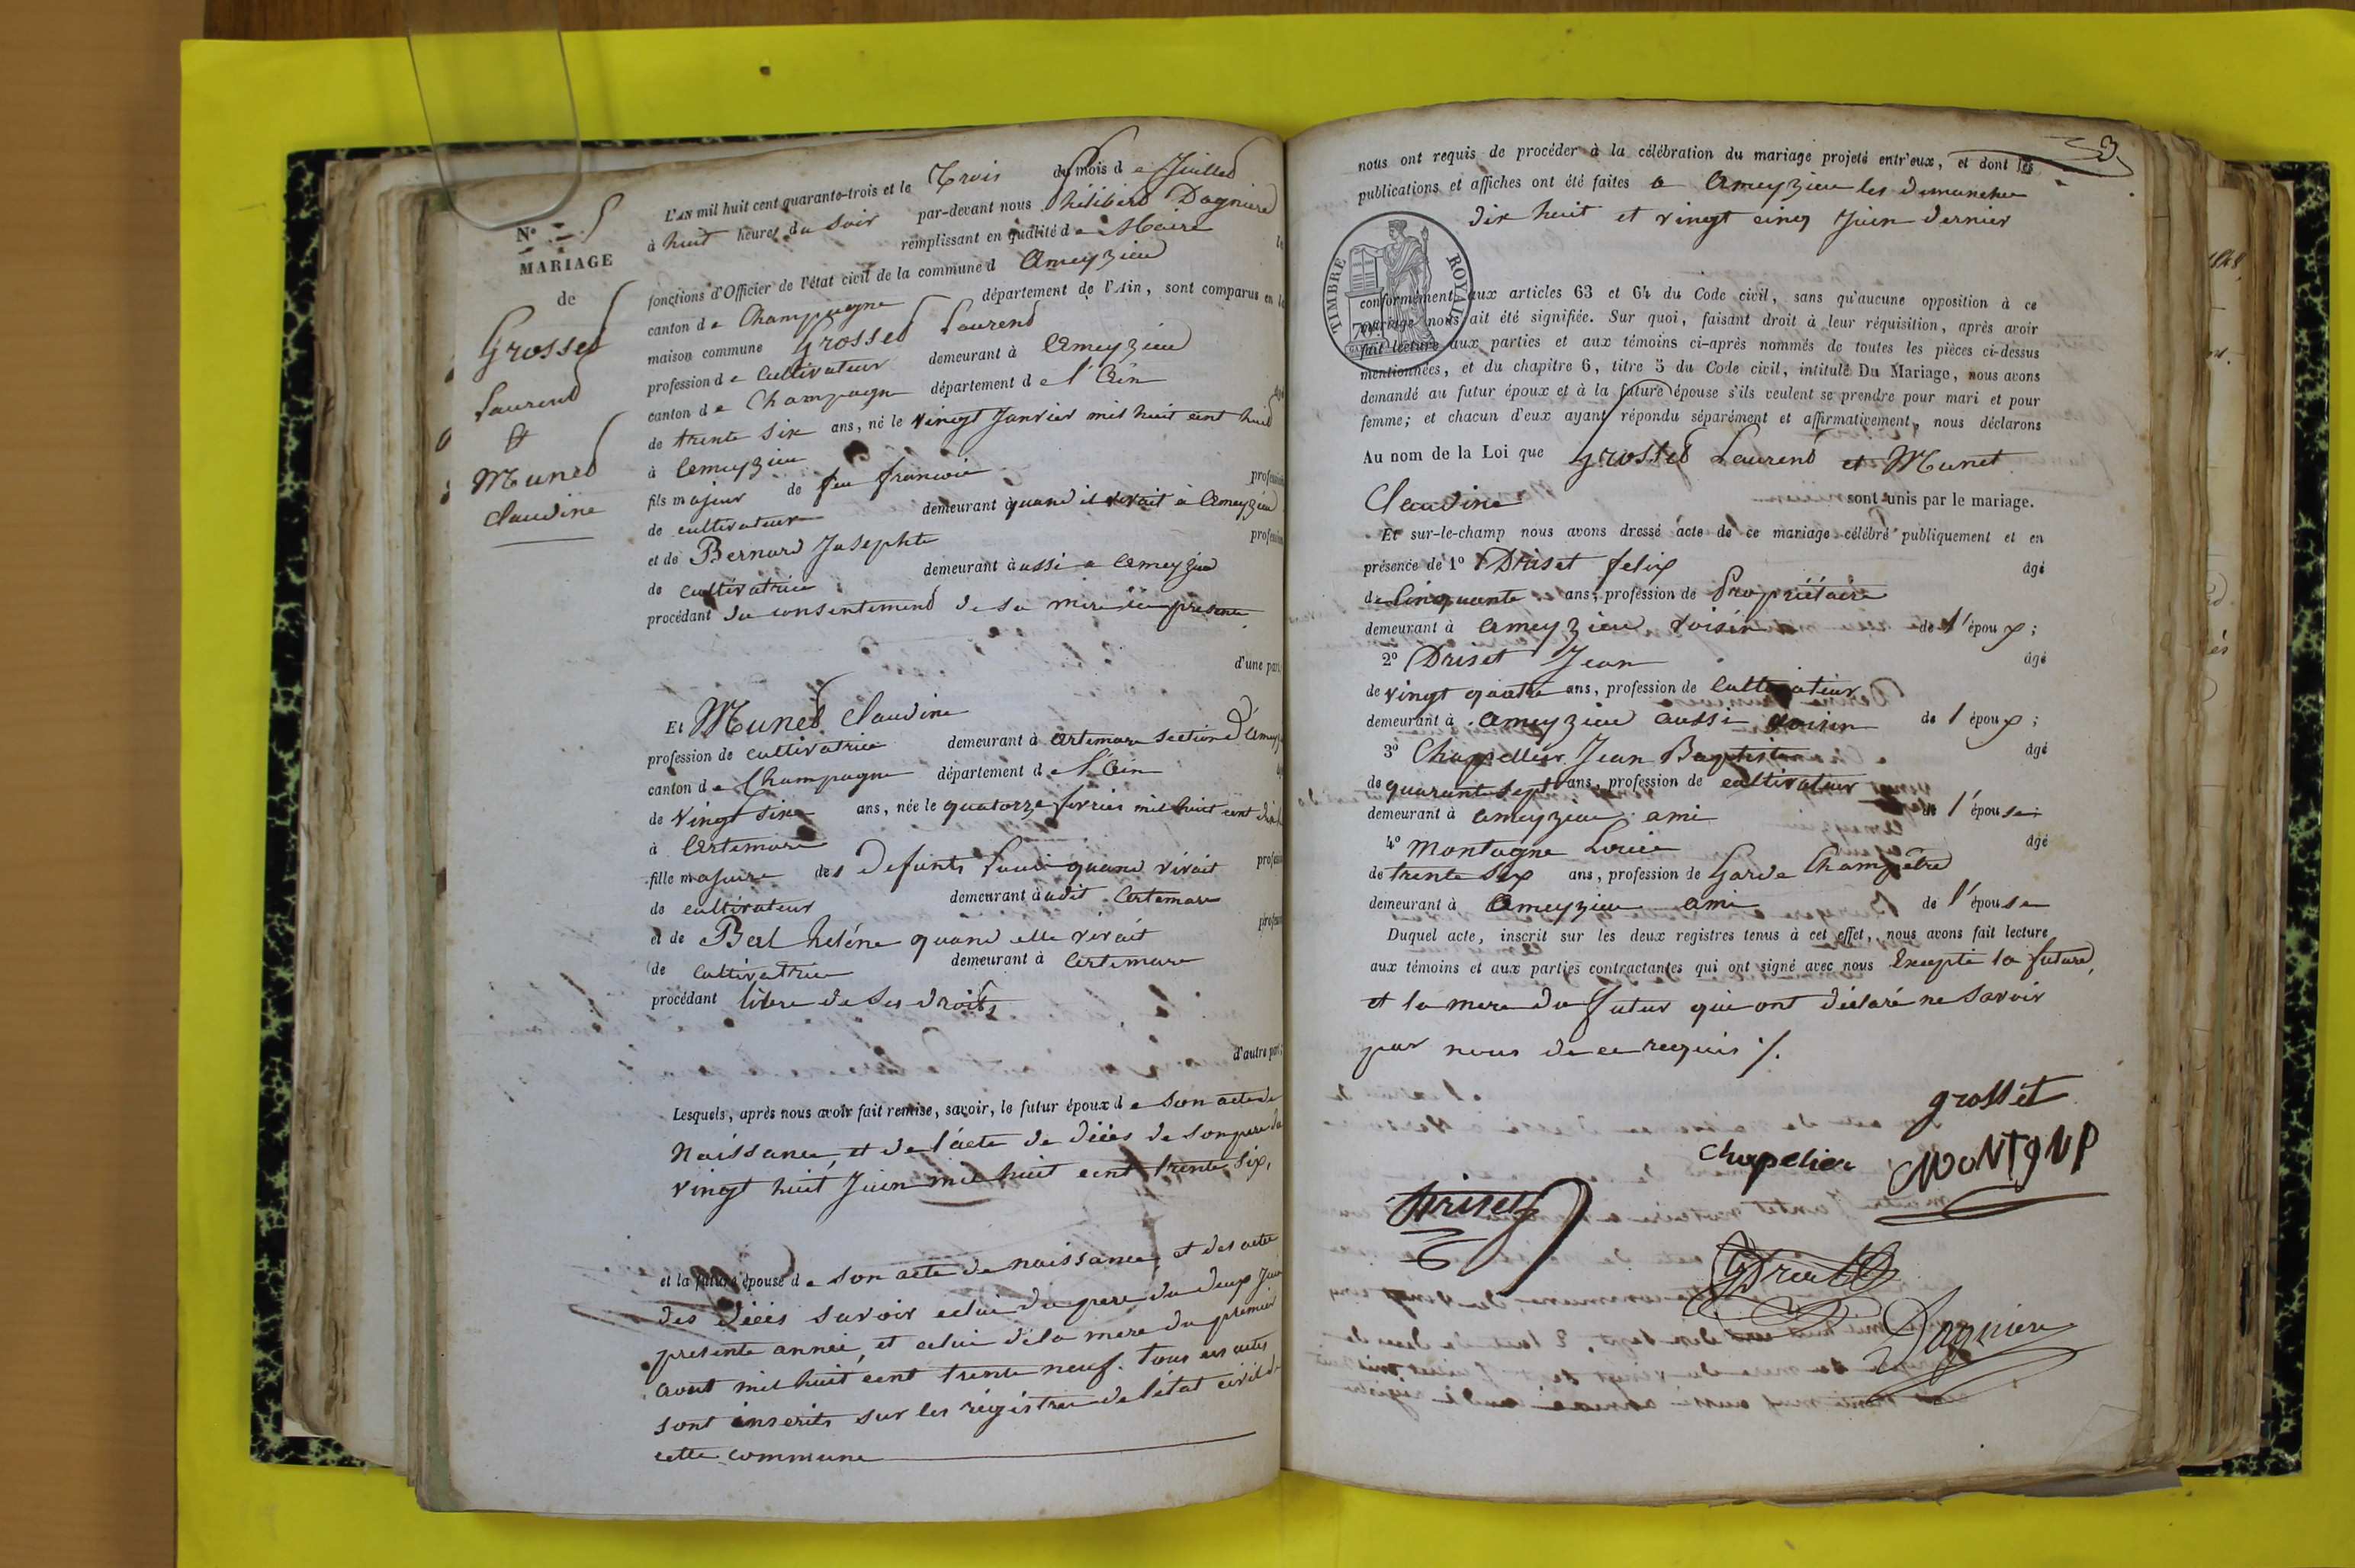 N° 5
MARIAGE
de
Grosset
Laurent
&
Munet
Claudine
L'AN mil huit cent quarante-trois et le Trois du mois de Juillet
à huit heures du Soir par-devant nous Philibert Dagnière
remplissant en qualité de Maire
fonctions d'Officier de l'état civil de la commune d Ameyzieu
canton de Champagne département de l'Ain, sont comparus en la
maison commune Grosset Laurent
profession de Cultivateur demeurant à Ameyzieu
canton de Champagne département de l'Ain
de trente Six ans, né le vingt Janvier mil huit cent huit
à Ameyzieu
fils majeur de feu francois
de cultivateur demeurant quand il vivait à Ameyzieu
et de Bernard Josephte
de cultivatrice demeurant aussi a Ameyzieu
procédant du consentement de sa mere ici présente
d'une part;
Et Munet Claudine
profession de cultivatrice demeurant à artemare section d'Ameyz
canton de Champagne département de l'Ain
de vingt Six ans, née le quatorze fevrier mil huit cent
à Artemare
fille majeure des defunts Louis quand vivait
de cultivateur demeurant audit Artemare
et de Bal heléne quand elle vivait
de cultivatrice demeurant à Artemare
procédant libre de ses droits
d'autre part;
Lesquels, après nous avoir fait remise, savoir, le futur époux de son acte de
Naissance, et de l'acte de décès de son pere du
vingt huit Juin mil huit cent trente six,
et la future épouse de son acte de naissance, et des actes
des décès savoir celui du pere du deux Juin
presente année, et celui de la mere du premier
aout mil huit cent trente neuf. tous ces actes
sont inscrits sur les régistres de l'état civil de
cette commune
3
nous ont requis de procéder à la célébration du mariage projeté entr'eux, et dont les
publications et affiches ont été faites a Ameyzieu les dimanches
dix huit et vingt cinq Juin dernier
TIMBRE ROYAL
conformément aux articles 63 et 64 du Code civil, sans qu'aucune opposition à ce
mariage nous ait été signifiée. Sur quoi, faisant droit à leur réquisition, après avoir
fait lecture aux parties et aux témoins ci-après nommés de toutes les pièces ci-dessus
mentionnées, et du chapitre 6, titre 5 du Code civil, intitulé Du Mariage, nous avons
demandé au futur époux et à la future épouse s'ils veulent se prendre pour mari et pour
femme; et chacun d'eux ayant répondu séparément et affirmativement, nous déclarons
Au nom de la Loi que Grosset Laurent et Munet
Claudine sont unis par le mariage.
Et sur-le-champ nous avons dressé acte de ce mariage célébré publiquement et en
présence de 1° Driset felix âgé
de Cinquante ans, profession de Propriétaire
demeurant à Ameyzieu voisin de l'époux;
2° Driset Jean âgé
de vingt quatre ans, profession de Cultivateur
demeurant à Ameyzieu aussi voisin de l époux;
3° Chapellier Jean Baptiste âgé
de quarante Sept ans, profession de cultivateur
demeurant à Ameyzieu ami de l'épouse;
4° Montagne Louis âgé
de trente Six ans, profession de Garde Champêtre
demeurant à Ameyzieu ami de l'épouse
Duquel acte, inscrit sur les deux registres tenus à cet effet, nous avons fait lecture
aux témoins et aux parties contractantes qui ont signé avec nous Excepté la future,
et la mere du futur qui ont déclaré ne Savoir
par nous de ce requis ./.
grosset
chapelier MONTGNP
Driset
Dagniere